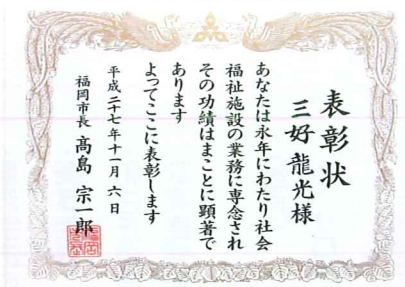 表彰状
三好龍光様
あなたは永年にわたり社会
福祉施設の業務に専念され
その功績はまことに顕著で
あります
よってここに表彰します
平成二十七年十一月六日
福岡市長 髙島宗一郎